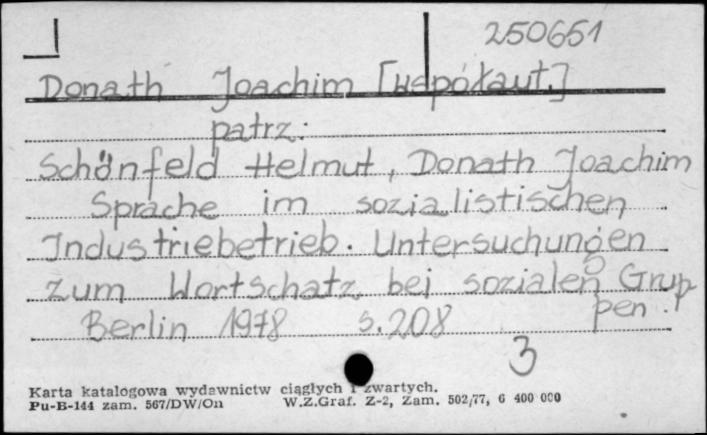 250651
Donath Joachim [współaut.]
patrz:
Schönfeld Helmut, Donath Joachim
Sprache im sozialistischen
Industriebetrieb. Untersuchungen
zum Wortschatz bei sozialen Grup
pen.
Berlin 1978 s. 208
3
Karta katalogowa wydawnictw ciągłych i zwartych.
Pu-B-144 zam. 567/DW/On W.Z.Graf. Z-2, Zam. 502/77, 6 400 000